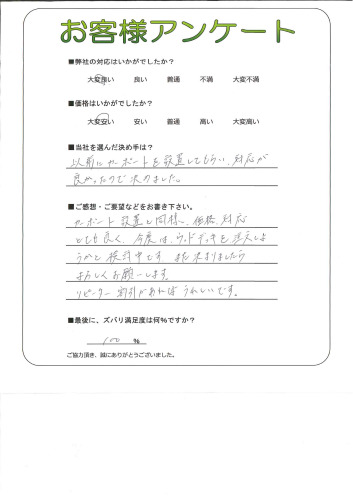 お客様アンケート
■弊社の対応はいかがでしたか？
大変良い 良い 普通 不満 大変不満
■価格はいかがでしたか？
大変安い 安い 普通 高い 大変高い
■当社を選んだ決め手は？
以前にカーポートを設置してもらい、対応が
良かったので決めました。
■ご感想・ご要望などをお書き下さい。
カーポート設置と同様、価格、対応
とても良く、今度は、ウッドデッキを注入しよ
うかと検討中です。また決まりましたら
よろしくお願いします。
リピーター割引があればうれしいです。
■最後に、ズバリ満足度は何%ですか？
100 %
ご協力頂き、誠にありがとうございました。